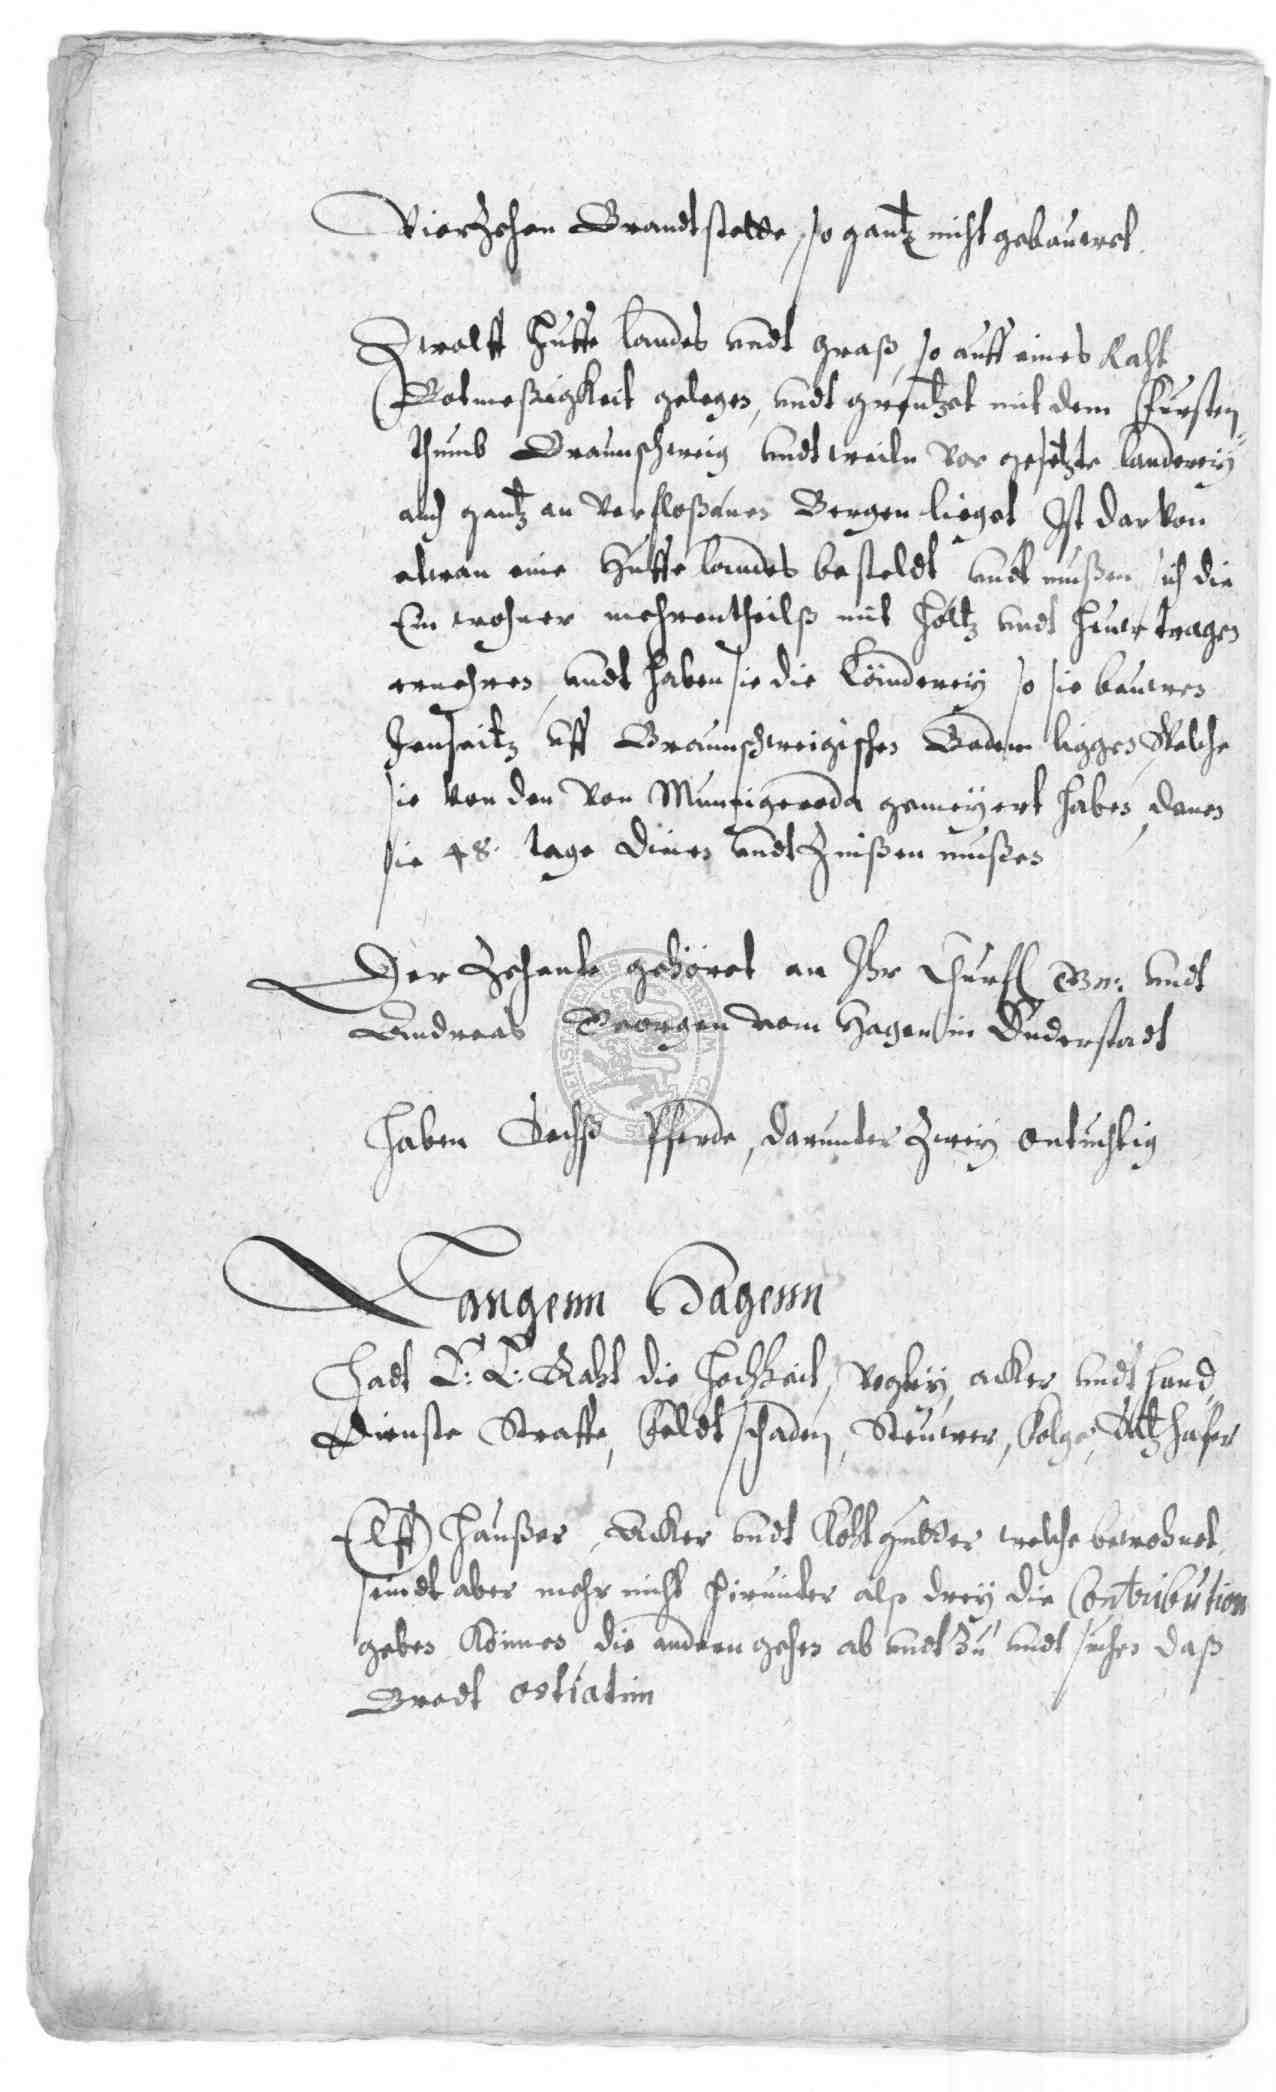 Vierzehen Brandtstette, so gantz nicht gebauwet.
Zwolff Huffe landes undt graß, so auff eines Raht
Botmeßigkeit gelegen, undt grentzet mit dem Fursten
thumb Braunschweig undt weiln vor gesetzte landerey
auch gantz an verfloßenen Bergen lieget Ist darvon
etwan eine Huffe landes besteldt undt mußen sich die
Einwohner mehrentheilß mit Holtz undt Heuw tragen
ernehren, undt haben sie die Länderey so sie bauwen
Jenseitz uff Braunschweigischen Bodem liggen, Welche
sie von den von Minnigeroda gemeyert haben, denen
sie 48. tage dienen undt Zinßen mußen
Der Zehente gehöret an Ihr Churfl Gn: undt
Andreas Georgen vom Hagen in Duderstadt
Haben Sechß Pferde, darunter Zwey ontuchtig
Langenn Hagenn
Hadt E: E: Raht die Hocheit, Vogtey, acker undt hand
Dienste Straffe, Feldt schaden, Steuwer, Folge, Saltz hafer
Elff Haußer, Acker undt Koht gutter welche bewohnet
seindt aber mehr nicht hirunter alß drey die Contribution
geben Können, die andern gehen ab undt zu undt suchen daß
Brodt ostiatim